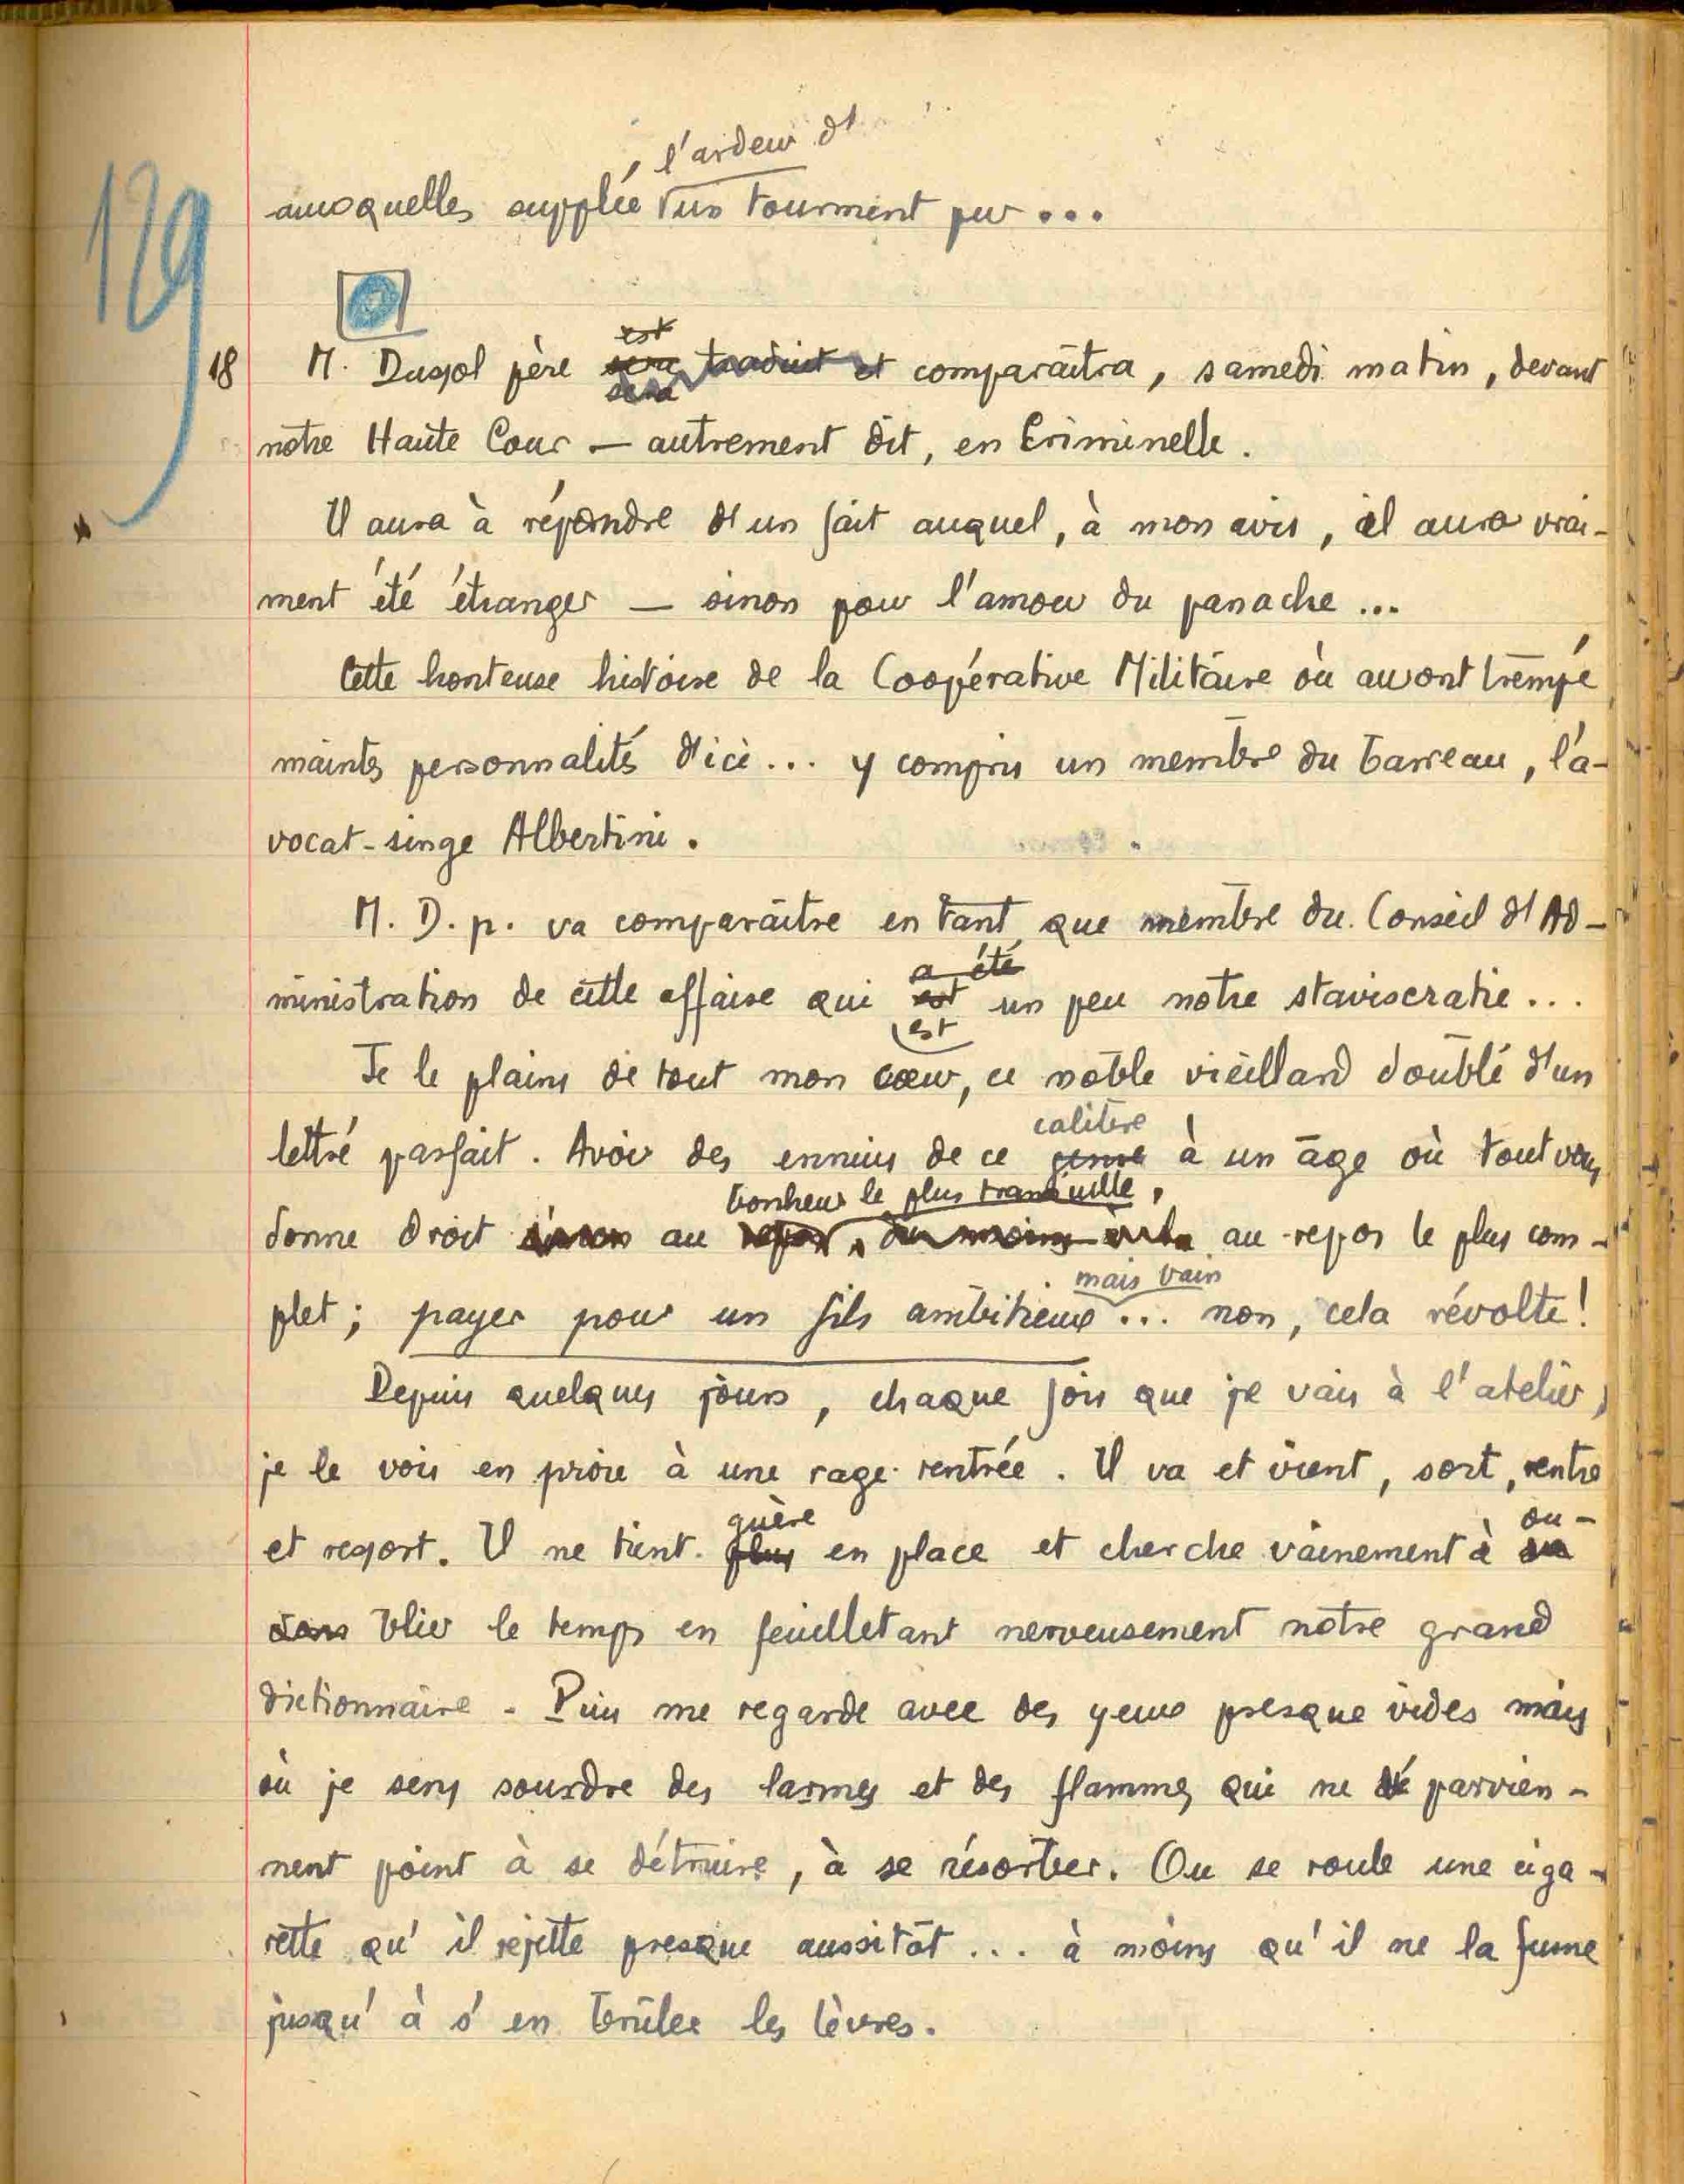 129
, l'ardeur d'
auxquelles supplée un tourment pur...
18
est
M. Dussol père sera traduit et comparaîtra, samedi matin, devant
sera
notre Haute Cour — autrement dit, en Criminelle.
Il aura à répondre d'un fait auquel, à mon avis, il aura vrai-
ment été étranger — sinon pour l'amour du panache...
Cette honteuse histoire de la Coopérative Militaire où auront trempé
maintes personnalités d'ici... y compris un membre du barreau, l'a-
vocat-singe Albertini.
M. D. p. va comparaître en tant que membre du Conseil d'Ad-
a été
ministration de cette affaire qui est un peu notre staviscratie...
est
Je le plains de tout mon cœur, ce noble vieillard doublé d'un
calibre
lettré parfait. Avoir des ennuis de ce genre à un âge où tout vous
bonheur le plus tranquille,
donne droit sinon au repos, du moins au repos le plus com-
mais vain
plet; payer pour un fils ambitieux... non, cela révolte!
Depuis quelques jours, chaque fois que je vais à l'atelier,
je le vois en proie à une rage rentrée. Il va et vient, sort, rentre
guère ou-
et resort. Il ne tient plus en place et cherche vainement à
blier le temps en feuilletant nerveusement notre grand
dictionnaire. Puis me regarde avec des yeux presque vides mais
où je sens sourdre des larmes et des flammes qui ne parvien-
nent point à se détruire, à se résorber. Ou se roule une ciga-
rette qu'il rejette presque aussitôt... à moins qu'il ne la fume
jusqu'à s'en brûler les lèvres.